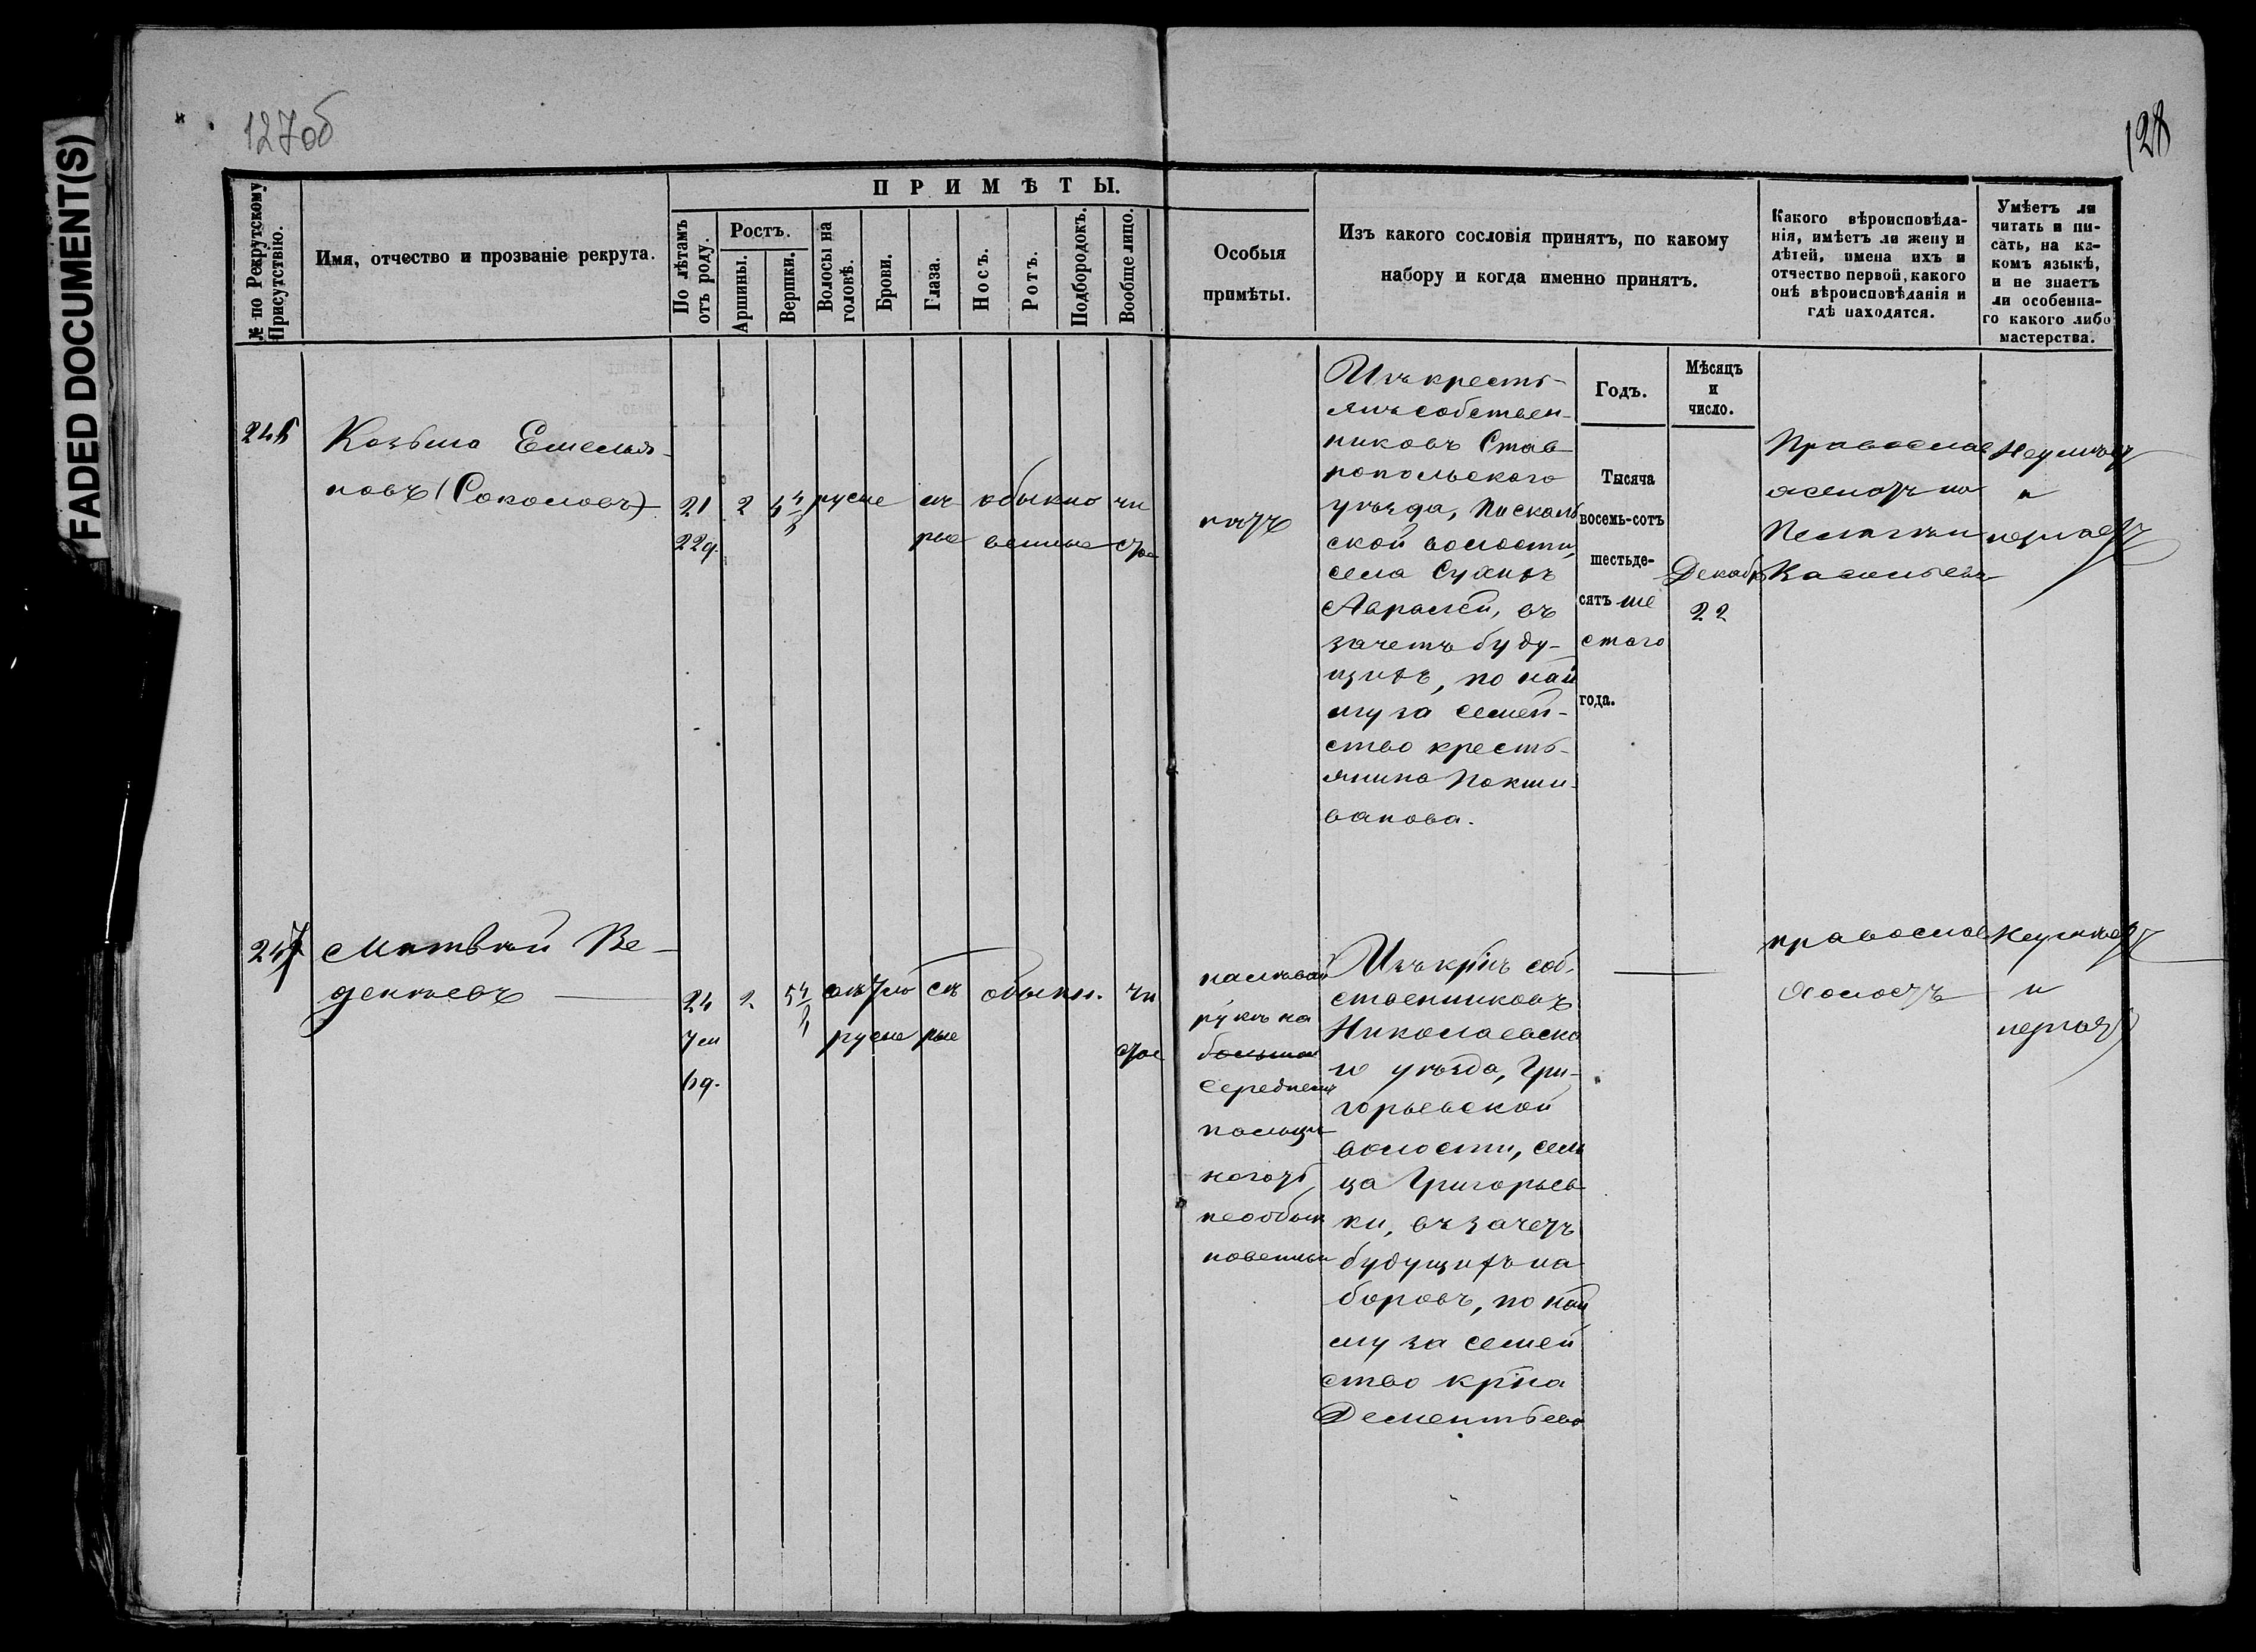 FADED DOCUMENT(S)
127об
128
№ по Рекрутскому
Присутствію.
Имя, отчество и прозваніе рекрута.
ПРИМѢТЫ.
По лѣтамъ
отъ роду.
Ростъ.
Аршины.
Вершки.
Волосы на
головѣ.
Брови.
Глаза.
Носъ.
Ротъ.
Подбородокъ.
Вообще лицо.
Особыя
примѣты.
Изъ какого сословія принятъ, по какому
набору и когда именно принятъ.
Какого вѣроисповѣда-
нія, имѣетъ ли жену и
дѣтей, имена ихъ и
отчество первой, какого
онѣ вѣроисповѣданія и
гдѣ находятся.
Умѣетъ ли
читать и пи-
сать, на ка-
комъ языкѣ,
и не знаетъ
ли особенна-
го какого либо
мастерства.
Козьма Емелья-
новъ (Соколовъ)
21
22д.
2
русые
сѣ
рые
обыкно
венные
чи
стое
нѣтъ
Изъ кресть-
янъ собствен-
никовъ Став-
ропольского
уѣзда, Пискалы
ской волости,
села Сухихъ
Авралей, въ
зачетъ буду-
щихъ, по най
му за семей-
ство кресть-
янина Покши-
ванова.
Годъ.
Тысяча
восемь-сотъ
шестьде-
сятъ ше
стого
года.
Мѣсяцъ
и
число.
Декабр
22
Православ
женатъ на
Пелагеи
Васильевн
Неумѣет
и
незнает
247
Матвѣй Ве-
денѣевъ
24
7 м
6д.
2
свѣтло
русые
сѣ
рые
обыкн.
чи
стое
на лѣвой
рукѣ на
большом
середнем
пальцѣ
ноготь
необык
новенный
Изъ крнъ соб-
ственниковъ
Николаевска
го уѣзда, Гри-
горьевской
волости, сель
ца Григорьев
ки, въ зачетъ
будущихъ на
боровъ, по най
му за семей
ство крна
Дементьева
православ
холостъ
Неумѣет
и
незнает